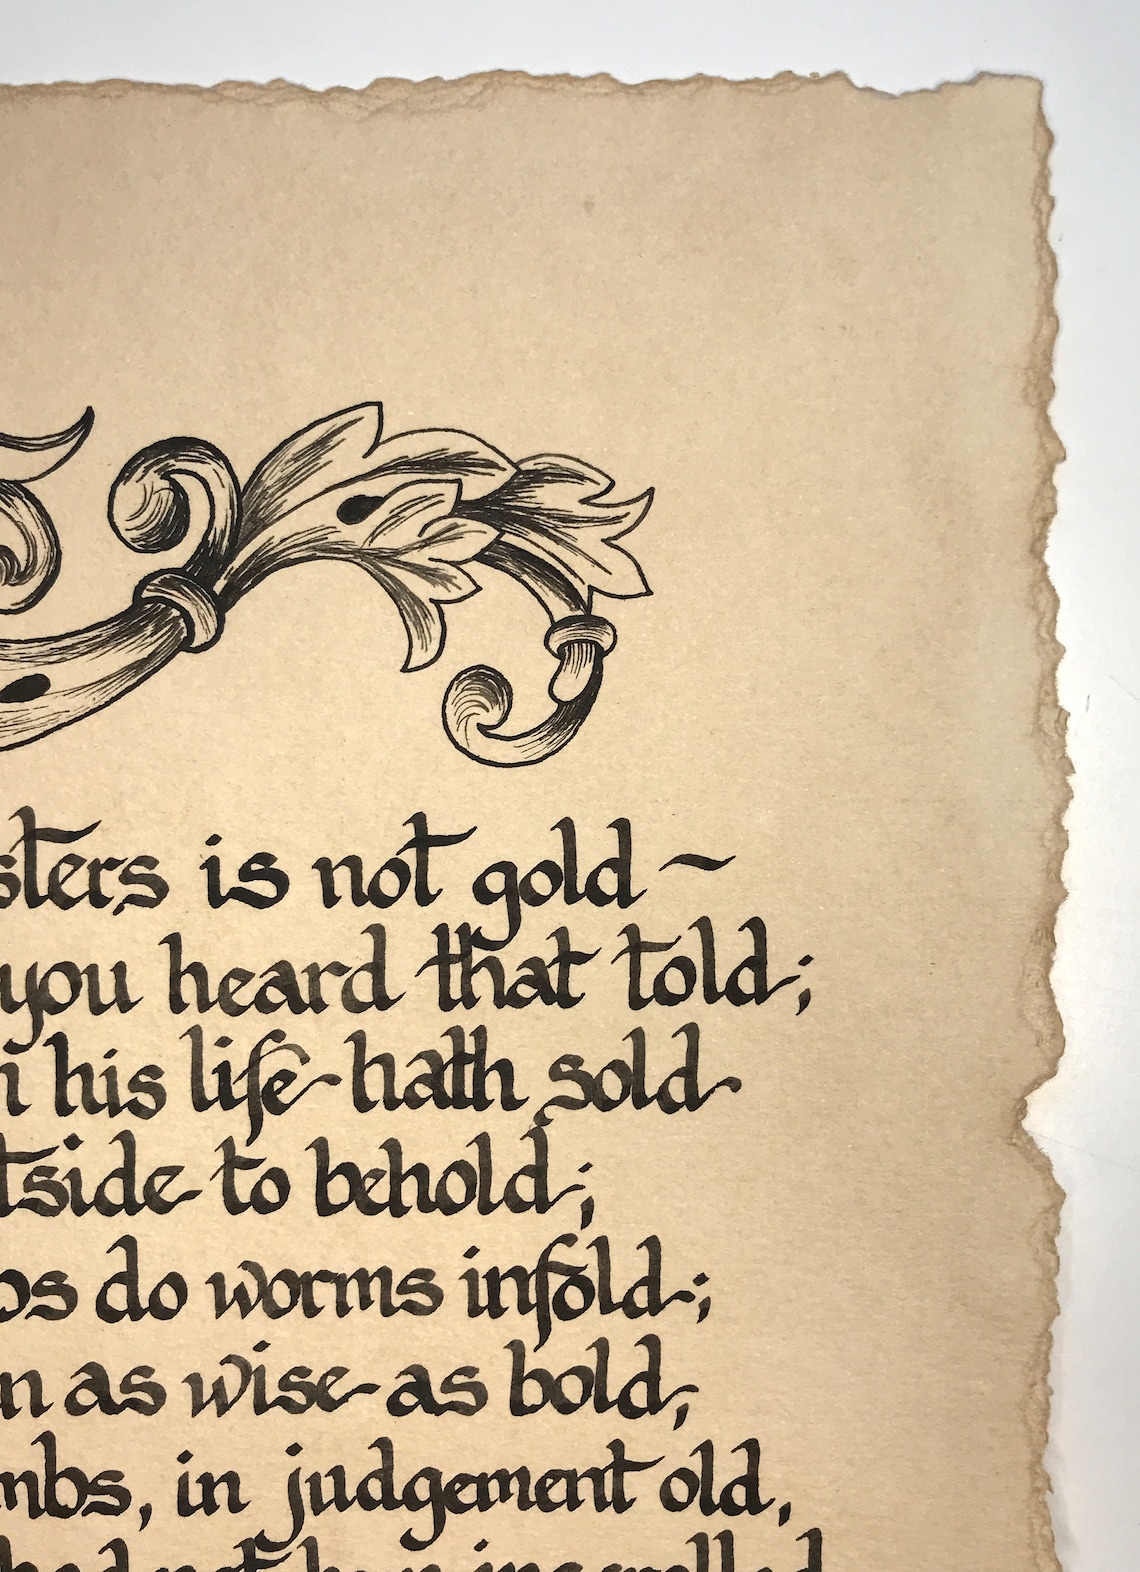 sters is not gold ~
you heard that told;
his life hath sold
tside to behold;
bs do worms infold;
n as wise as bold,
mbs, in judgement old,
had not been inscrolled